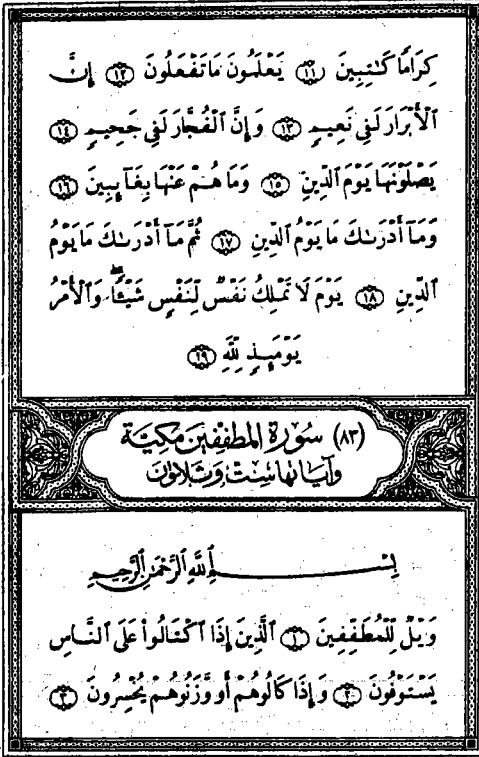 كِرَامًا كَٰتِبِينَ ١١ يَعْلَمُونَ مَا تَفْعَلُونَ ١٢ إِنَّ
ٱلْأَبْرَارَ لَفِى نَعِيمٍ ١٣ وَإِنَّ ٱلْفُجَّارَ لَفِى جَحِيمٍ ١٤
يَصْلَوْنَهَا يَوْمَ ٱلدِّينِ ١٥ وَمَا هُمْ عَنْهَا بِغَآئِبِينَ ١٦
وَمَآ أَدْرَىٰكَ مَا يَوْمُ ٱلدِّينِ ١٧ ثُمَّ مَآ أَدْرَىٰكَ مَا يَوْمُ
ٱلدِّينِ ١٨ يَوْمَ لَا تَمْلِكُ نَفْسٌ لِّنَفْسٍ شَيْـًٔا ۖ وَٱلْأَمْرُ
يَوْمَئِذٍ لِّلَّهِ ١٩
(٨٣) سُورَة المطفّفين مَكيَّة
وَآيَاتهَا سِتّ وَثَلاثونَ
بِسْمِ ٱللَّهِ ٱلرَّحْمَٰنِ ٱلرَّحِيمِ
وَيْلٌ لِّلْمُطَفِّفِينَ ١ ٱلَّذِينَ إِذَا ٱكْتَالُوا۟ عَلَى ٱلنَّاسِ
يَسْتَوْفُونَ ٢ وَإِذَا كَالُوهُمْ أَو وَّزَنُوهُمْ يُخْسِرُونَ ٣